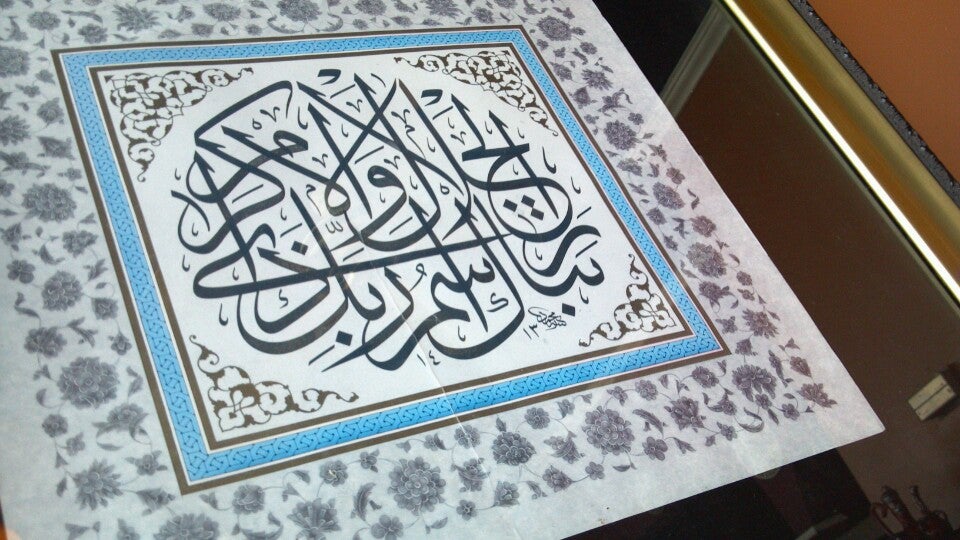 تبارك اسم ربك ذي الجلال والاكرام